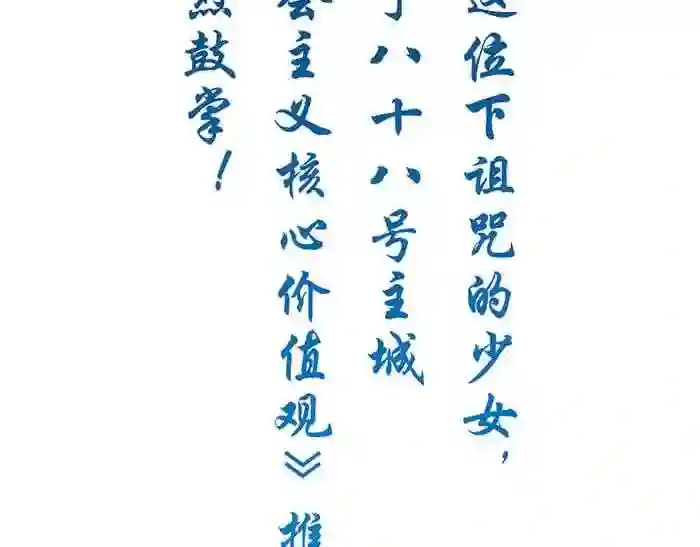 这位下诅咒的少女,
八十八号主城
会主义核心价值观》推
烈鼓掌!